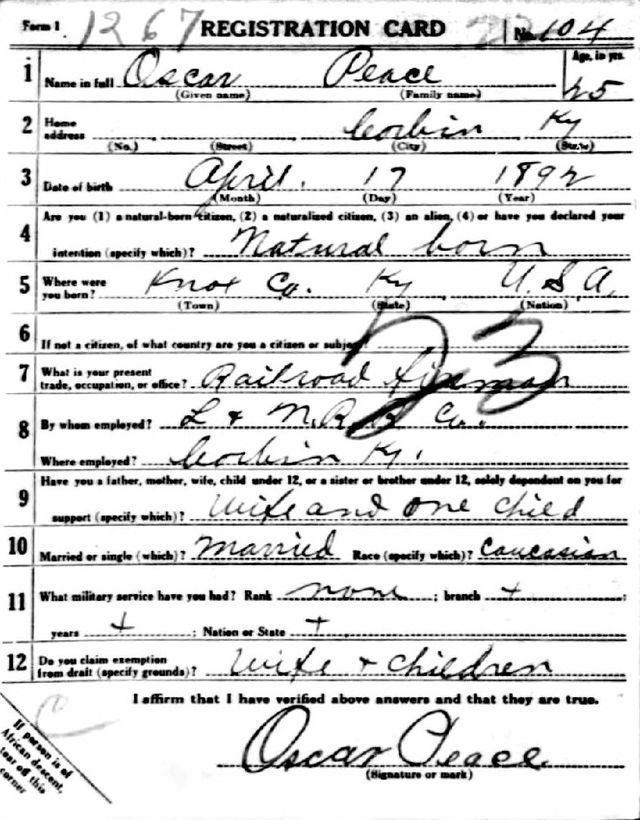 Form 1 1267 REGISTRATION CARD No. 104
1 Name in full Oscar Peace Age, in yrs. 25
(Given name) (Family name)
2 Home address Corbin Ky
(No.) (Street) (City) (State)
3 Date of birth April. 17 1892
(Month) (Day) (Year)
4 Are you (1) a natural-born citizen, (2) a naturalized citizen, (3) an alien, (4) or have you declared your
intention (specify which)? Natural born
5 Where were you born? Knox Co. Ky U.S.A.
(Town) (State) (Nation)
6 If not a citizen, of what country are you a citizen or subject?
23
7 What is your present trade, occupation, or office? Railroad fireman
8 By whom employed? L & N. R. R. Co.
Where employed? Corbin Ky.
9 Have you a father, mother, wife, child under 12, or a sister or brother under 12, solely dependent on you for
support (specify which)? Wife and one child
10 Married or single (which)? Married Race (specify which)? Caucasian
11 What military service have you had? Rank none ; branch + ;
years + ; Nation or State +
12 Do you claim exemption from draft (specify grounds)? Wife + children
I affirm that I have verified above answers and that they are true.
C
If person is of
African descent,
tear off this
corner
Oscar Peace
(Signature or mark)